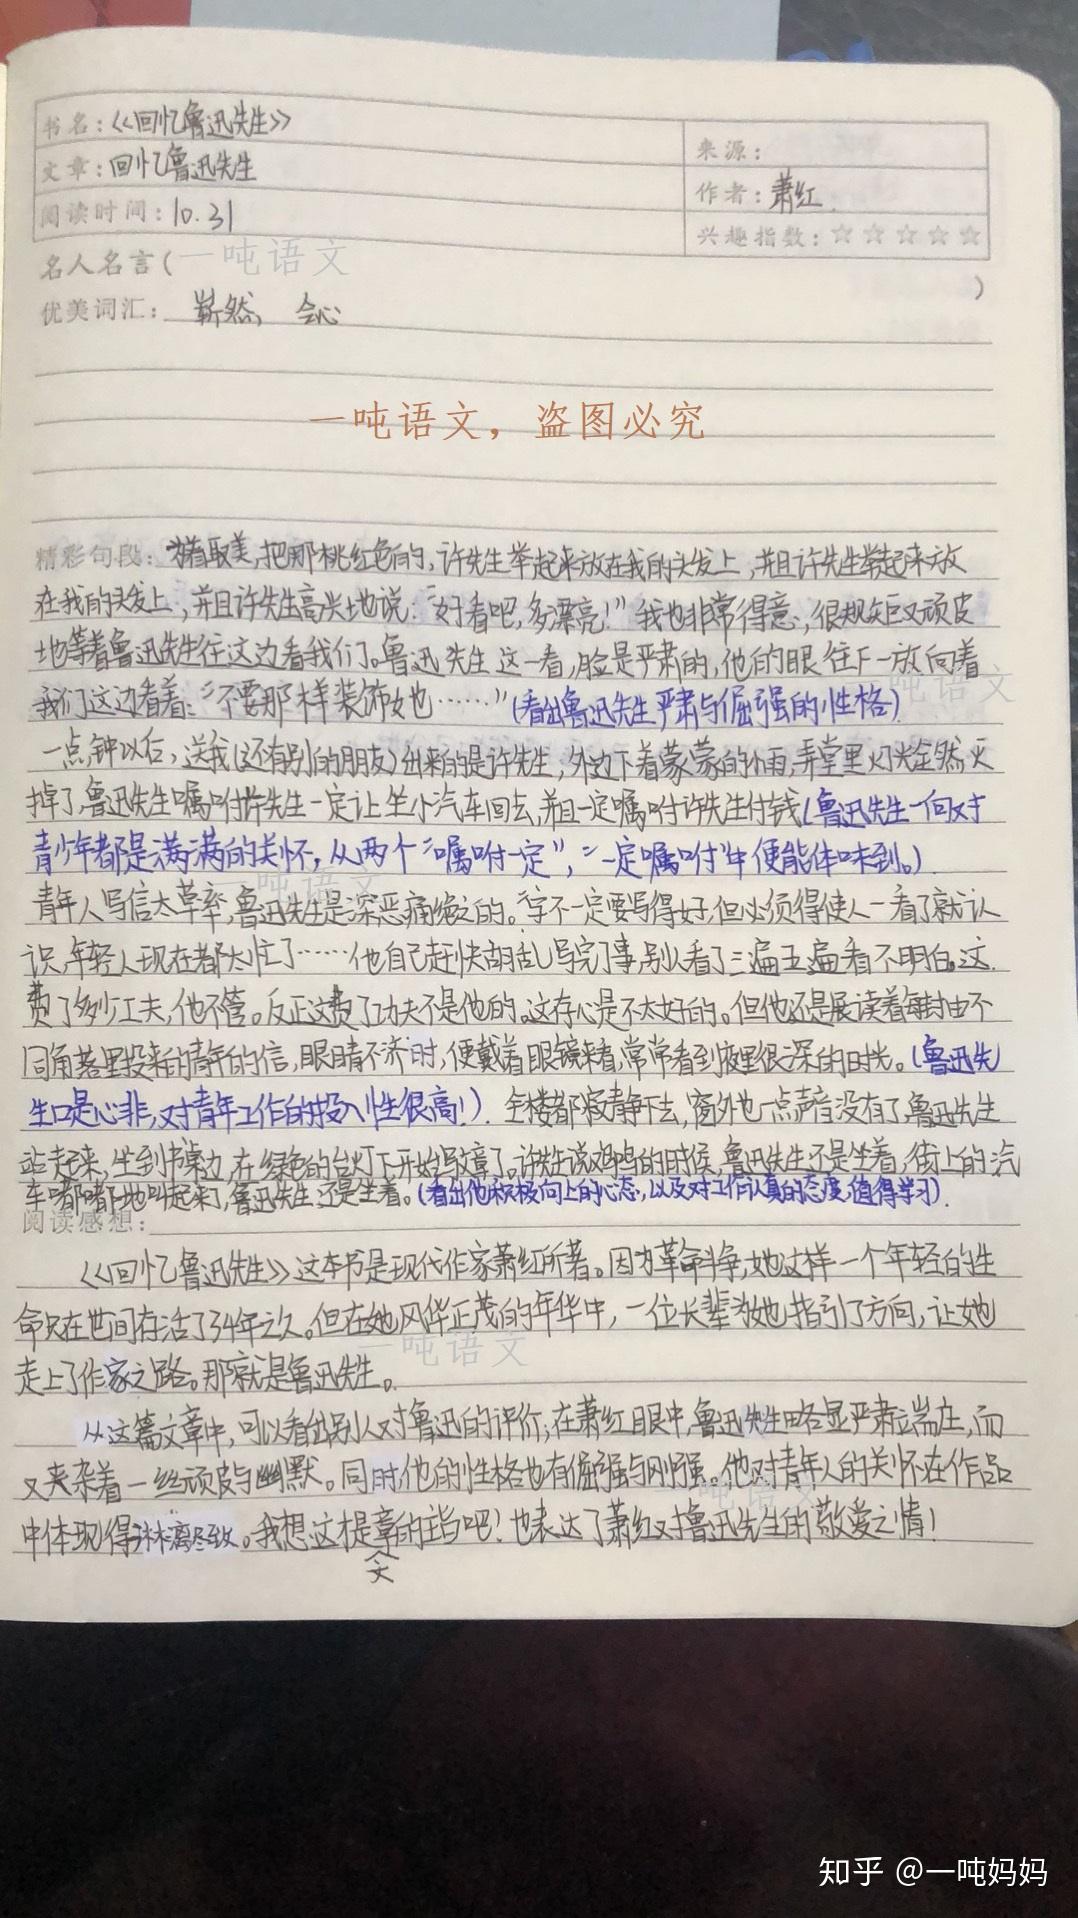 书名:《回忆鲁迅先生》
来源:
文章:回忆鲁迅先生
作者:萧红
阅读时间:10.31
兴趣指数:☆☆☆☆☆
名人名言( )
一吨语文
优美词汇: 崭然, 会心
一吨语文，盗图必究
精彩句段: 为着取美,把那桃红色的,许先生举起来放在我的头发上,并且许先生举起来放
在我的头发上,并且许先生高兴地说:“好看吧,多漂亮!”我也非常得意,很规矩又顽皮
地等着鲁迅先生往这边看我们。鲁迅先生这一看,脸是严肃的,他的眼往下一放向着
我们这边看着:“不要那样装饰她……”(看出鲁迅先生严肃与倔强的性格)
吨语文
一点钟以后,送我(还有别的朋友)出来的是许先生,外边下着蒙蒙的小雨,弄堂里灯光全然灭
掉了,鲁迅先生嘱咐许先生一定让坐小汽车回去,并且一定嘱咐许先生付钱(鲁迅先生一向对
青少年都是满满的关怀,从两个“嘱咐一定”,“一定嘱咐”中便能体味到。)
一吨语文
青年人写信太草率,鲁迅先生是深恶痛绝之的。字不一定要写得好,但必须得使人一看了就认
识,年轻人现在都太忙了……他自己赶快胡乱写完了事,别人看了三遍五遍看不明白。这
费了多少工夫,他不管。反正这费了功夫不是他的。这存心是不太好的。但他还是展读着每封由不
同角落里投来的青年的信,眼睛不济时,便戴着眼镜来看,常常看到夜里很深的时光。(鲁迅先
生口是心非,对青年工作的投入性很高!) 全楼都寂静下去,窗外也一点声音没有了,鲁迅先生
站起来,坐到书桌边,在绿色的台灯下开始写文章了。许先生说鸡鸣的时候,鲁迅先生还是坐着,街上的汽
车嘟嘟地叫起来了,鲁迅先生还是坐着。(看出他积极向上的心态,以及对工作认真的态度,值得学习).
阅读感想:
《回忆鲁迅先生》这本书是现代作家萧红所著。因为革命斗争,她这样一个年轻的生
命只在世间存活了34年之久。但在她风华正茂的年华中,一位长辈为她指引了方向,让她
走上了作家之路。那就是鲁迅先生。
一吨语文
从这篇文章中,可以看出别人对鲁迅的评价;在萧红眼中,鲁迅先生略显严肃端庄,而
又夹杂着一丝顽皮与幽默。同时他的性格也有倔强与刚强。他对青年人的关怀在作品
一吨语文
中体现得淋漓尽致。我想这才是章的主旨吧!也表达了萧红对鲁迅先生的敬爱之情!
文
知乎 @一吨妈妈